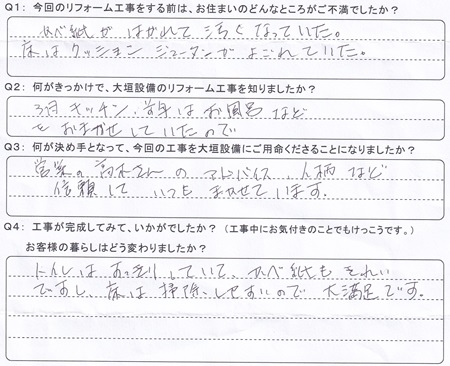 Q1：今回のリフォーム工事をする前は、お住まいのどんなところがご不満でしたか？
かべ紙が はがれて 汚く なっていた。
床はクッション ジュータンが よごれていた。
Q2：何がきっかけで、大垣設備のリフォーム工事を知りましたか？
キッチン、 はお風呂 など
を おまかせしていたので
Q3：何が決め手となって、今回の工事を大垣設備にご用命くださることになりましたか？
営業の 高木さんの アドバイス、人柄など
信頼して いつも まかせています。
Q4：工事が完成してみて、いかがでしたか？（工事中にお気付きのことでもけっこうです。）
お客様の暮らしはどう変わりましたか？
トイレは すっきりしていて、かべ紙も きれい
ですし、床は 掃除しやすいので 大満足です。